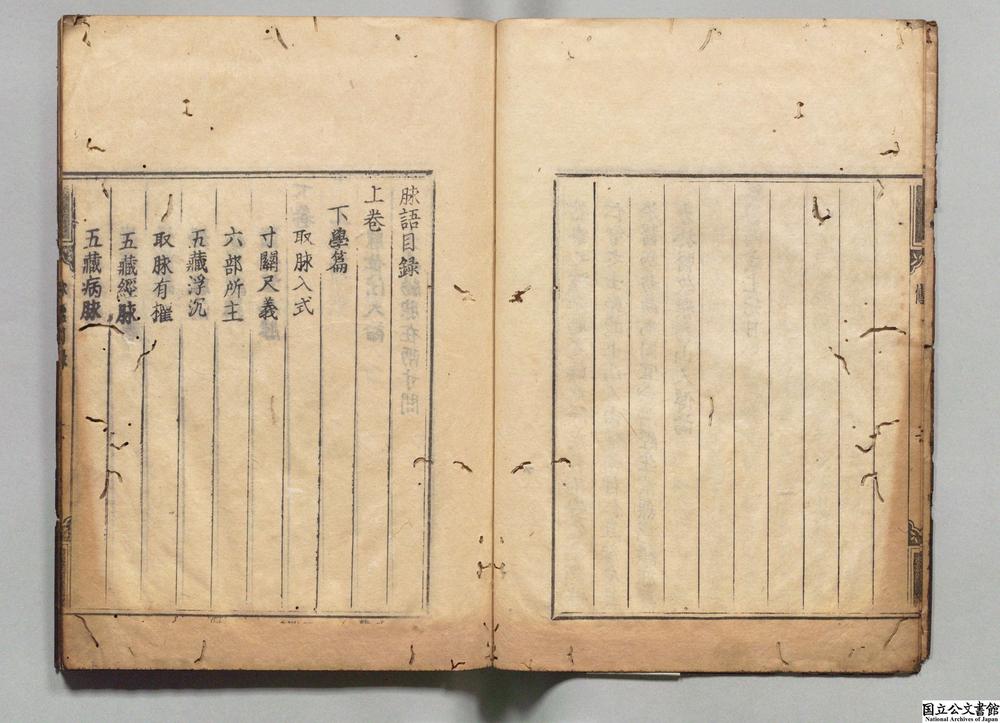 脉語目録
上卷
下學篇
取脉入式
寸關尺義
六部所主
五藏浮沉
取脉有權
五藏經脉
五藏病脉
国立公文書館
National Archives of Japan